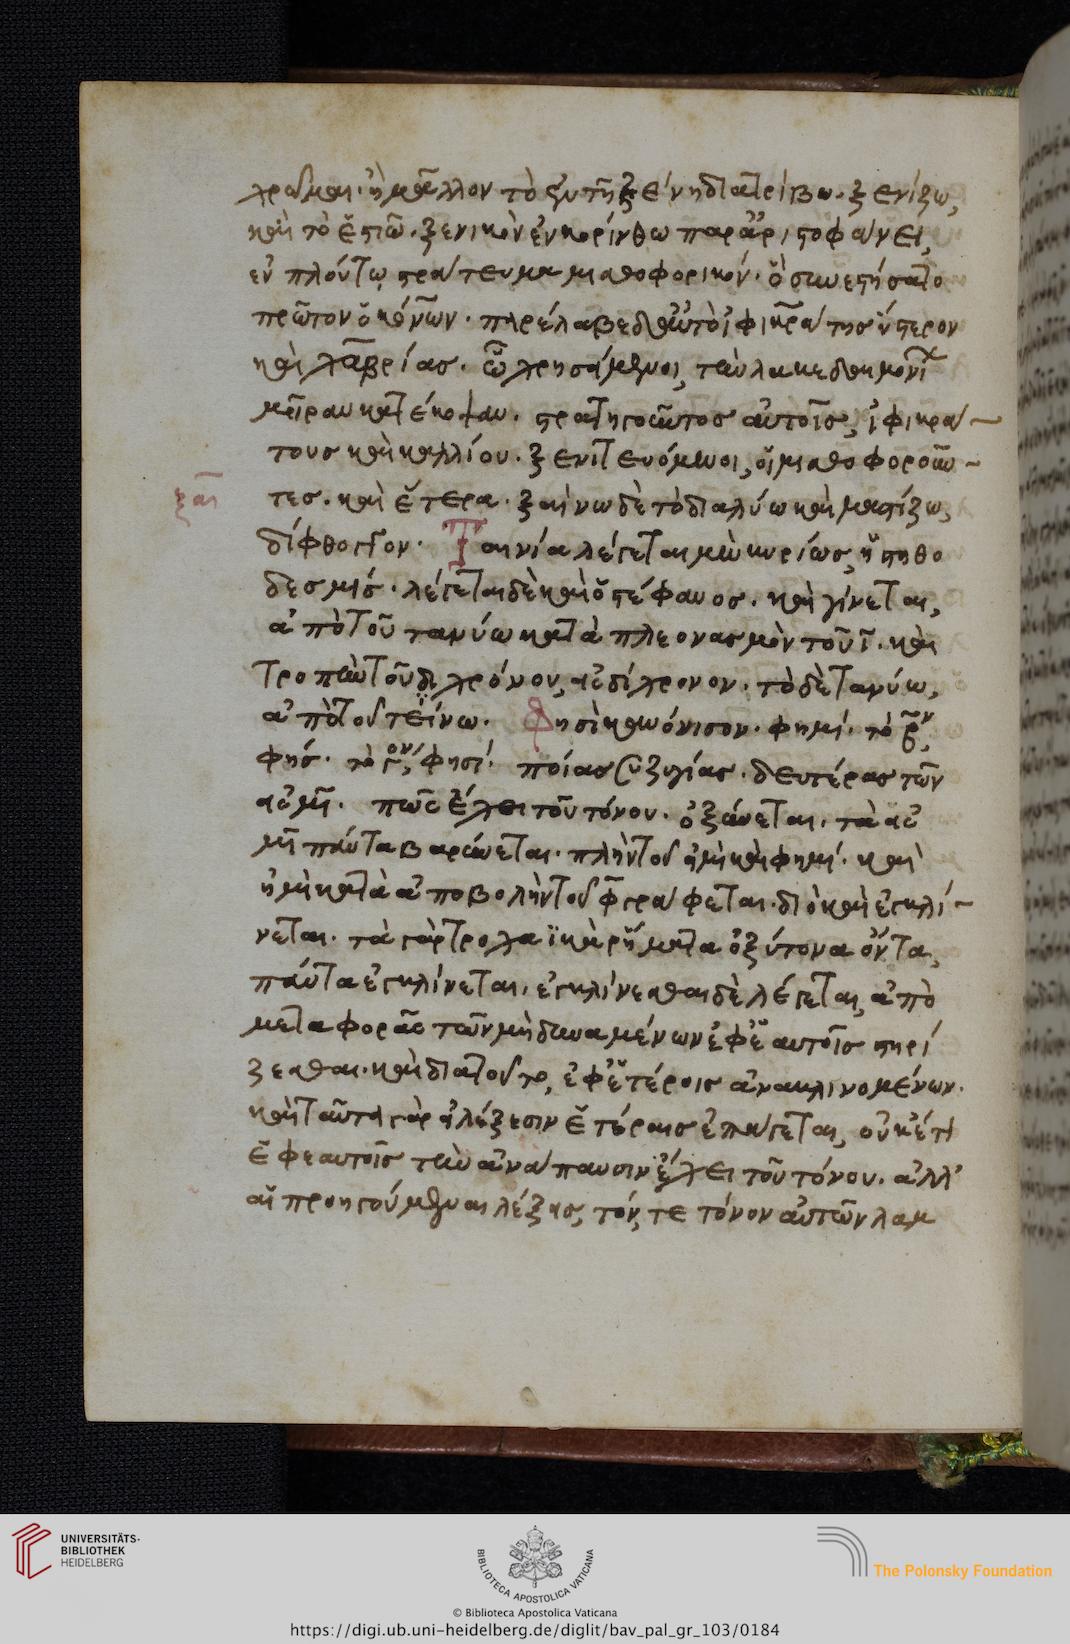 χροῦμαι· ἢ μᾶλλον τὸ ἐν τῇ ξείνῃ διατρίβω. ξενίζω,
καὶ τὸ ἑστιῶ. ξενικὸν ἐν κορίνθω παρὰ ἀριστοφάνει,
ἐν πλούτῳ στράτευμα μισθοφορικόν. ὃ συνεστήσατο
πρῶτον ὁ κόνων. παρέλαβε δὲ αὐτὸ ἰφικράτης ὕστερον
καὶ χαβρίας. ᾧ χρησάμενοι, τὴν λακεδαιμονίων
μεῖραν κατέκοψαν. στρατηγοῦντος αὐτοῖς, ἰφικρά
τους καὶ καλλίου. ξενιτευόμενοι, οἱ μισθοφοροῦν
τες. καὶ ἕτερα. ξαίνω δὲ τὸ διαλύω καὶ μαστίζω,
ξαι
δίφθογγον. Ταινία λέγεται μὲν κυρίως, ἡ στηθο
δεσμίς. λέγεται δὲ καὶ ὁ στέφανος. καὶ γίνεται,
ἀπὸ τοῦ τανύω κατὰ πλεονασμὸν τοῦ ι. καὶ
τροπὴν τοῦ διχρόνου, εἰς δίχρονον. τὸ δὲ τανύω,
ἀπὸ τοῦ τείνω. Φησὶ κανόνισον. φημί. τὸ βον,
φής. τὸ γον, φησί. ποίας συζυγίας. δευτέρας τῶν
εἰς μι. πῶς ἔχει τοῦ τόνου. ὀξύνεται. τὰ εἰς
μι πάντα βαρύνεται. πλὴν τοῦ ἠμὶ καὶ φημί. καὶ
ἠμὶ κατὰ ἀποβολὴν τοῦ φ γράφεται. διὸ καὶ ἐγκλί
νεται. τὰ γὰρ τροχαϊκὰ ῥήματα ὀξύτονα ὄντα,
πάντα ἐγκλίνεται. ἐγκλίνεσθαι δὲ λέγεται, ἀπὸ
μεταφορᾶς τῶν μὴ δυναμένων ἐφ' ἑαυτοῖς στηρί
ζεσθαι. καὶ διὰ τοῦτο, ἐφ' ἑτέροις ἀνακλινομένων.
καὶ ταῦτα γὰρ ἡ λέξεσιν ἑτέραις ἐπάγεται, οὐκέτι
ἐφ' ἑαυτοῖς τὴν ἀνάπαυσιν ἔχει τοῦ τόνου. ἀλλ'
αἱ προηγούμεναι λέξεις, τόν, τε τόνον αὐτῶν λαμ
UNIVERSITÄTS-
BIBLIOTHEK
HEIDELBERG
BIBLIOTECA APOSTOLICA VATICANA
The Polonsky Foundation
© Biblioteca Apostolica Vaticana
https://digi.ub.uni-heidelberg.de/diglit/bav_pal_gr_103/0184